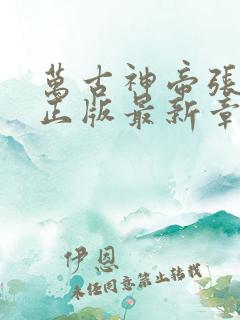 萬古神帝張
正版最新章
伊恩
未经同意禁止转载